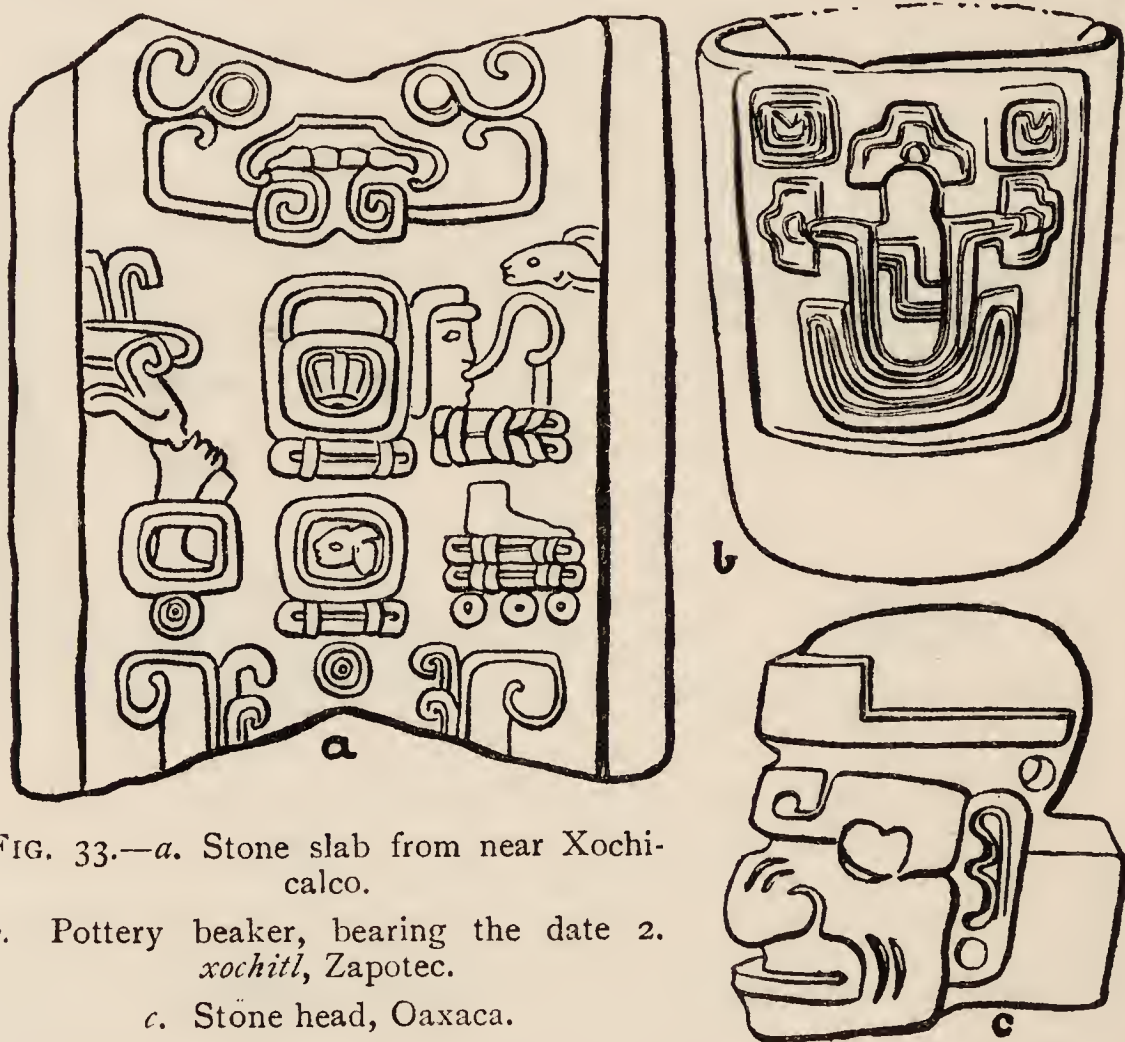 a
b
c
FIG. 33.—a. Stone slab from near Xochi-
calco.
. Pottery beaker, bearing the date 2.
xochitl, Zapotec.
c. Stone head, Oaxaca.